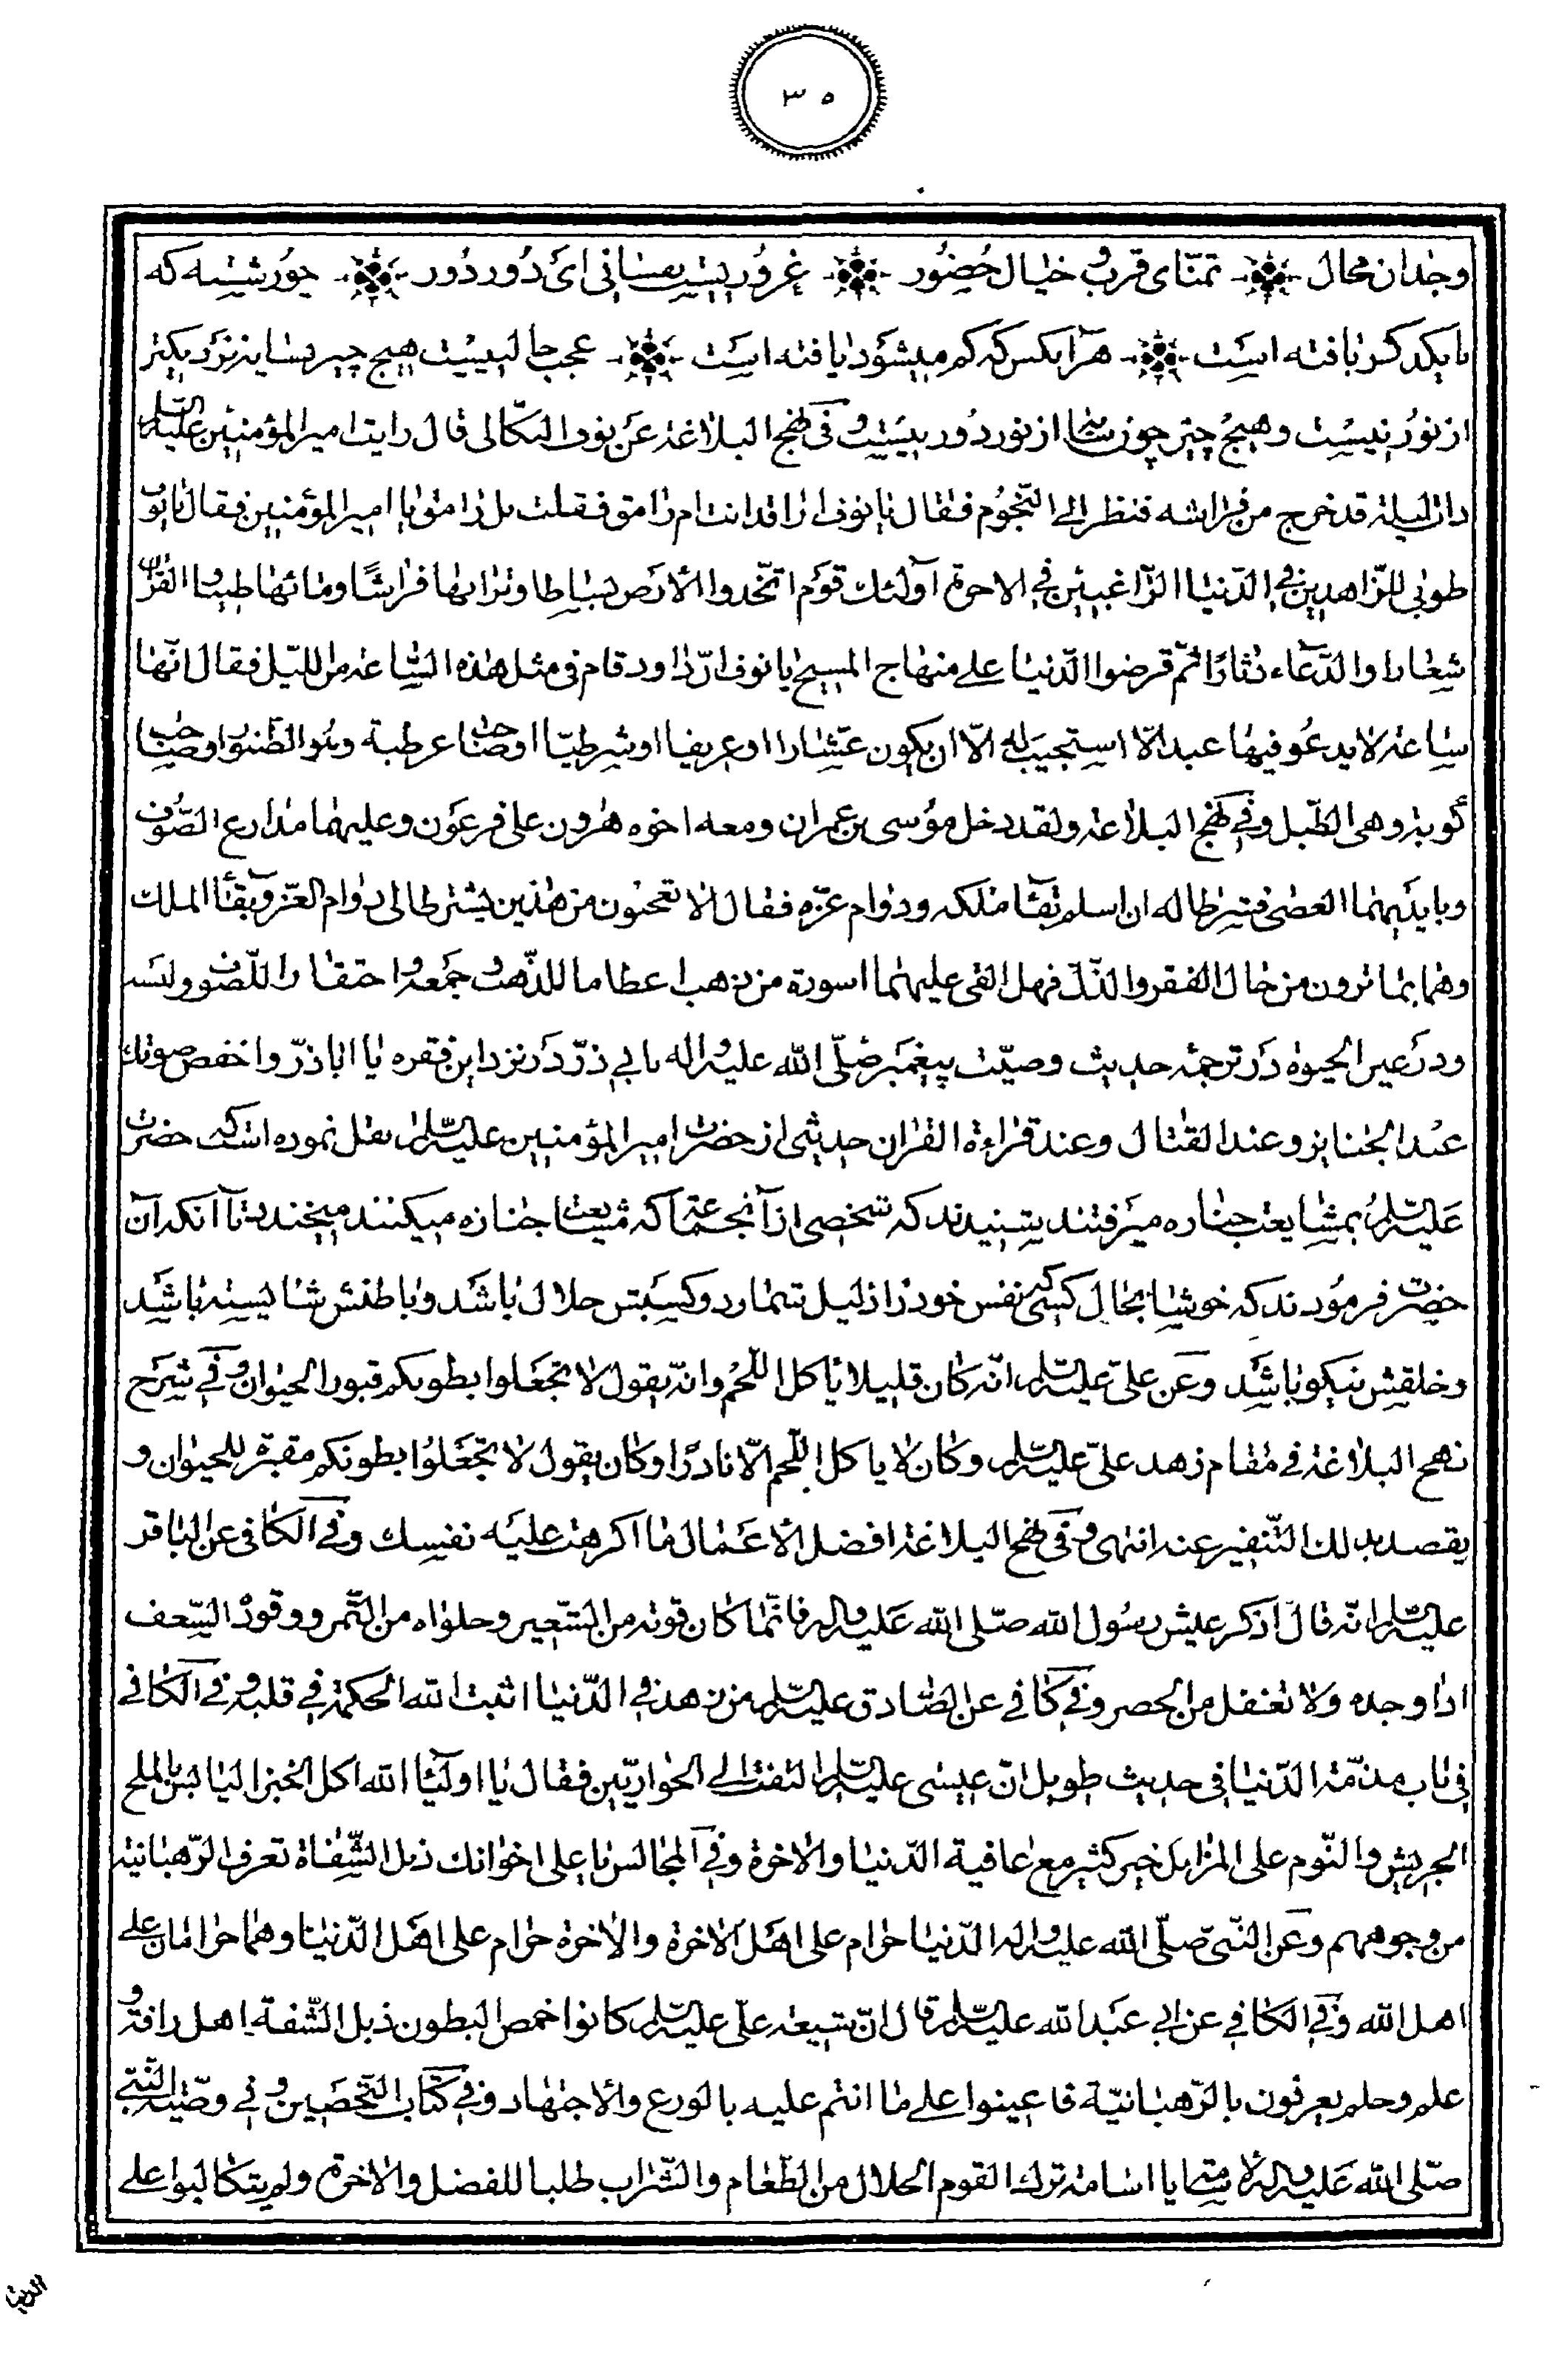 ٣٥
وجدان محال تمنّای قرب و خیال حضور غروریست نفسانی ای دور دور چو رشته که
با یکدگر تافته است هر آنکس که گم میشود یافته است عجب حالیست هیچ چیز بسایه نزدیکتر
از نور نیست و هیچ چیز چون سایه از نور دور نیست و فی نهج البلاغة عن نوف البکالی قال رایت امیر المؤمنین علیه السلام
ذات لیلة قد خرج من فراشه فنظر الی النّجوم فقال یا نوف اراقد انت ام رامق فقلت بل رامق یا امیر المؤمنین فقال یا نوف
طوبی للزّاهدین فی الدّنیا الرّاغبین فی الاخرة اولئك قوم اتّخذوا الأرض بساطا و ترابها فراشًا و مائها طیبا و القرآن
شعارا و الدّعاء دثارًا ثمّ قرضوا الدّنیا علی منهاج المسیح یا نوف انّ داود قام فی مثل هذه السّاعة من اللیل فقال انّها
ساعة لا یدعو فیها عبد الّا استجیب له الّا ان یکون عشّارا او عریفا او شرطیّا او صاحب عرطبة و هو الطنبور او صاحب
کوبة و هی الطّبل و فی نهج البلاغة و لقد دخل موسی بن عمران و معه اخوه هرون علی فرعون و علیهما مدارع الصّوف
و بایدیهما العصی فشرطا له ان اسلم بقاء ملکه و دوام عزّه فقال الا تعجبون من هذین یشترطا لی دوام العزّ و بقاء الملك
و هما بما ترون من حال الفقر و الذّلّ فهل القی علیهما اسورة من ذهب اعظاما للذّهب و جمعه و احتقارا للصّوف و لبسه
و در عین الحیوة در ترجمه حدیث وصیّت پیغمبر صلّی الله علیه و اله بابی ذرّ در نزد این فقره یا اباذرّ و اخفض صوتك
عند الجنایز و عند القتال و عند قراءة القران حدیثی از حضرت امیر المؤمنین علیه السّلام نقل نموده است که حضرت
علیه السّلام بمشایعت جنازه میرفتند شنیدند که شخصی از آنجماعتی که مشایعت جنازه میکنند میخندد تا آنکه آن
حضرت فرمودند که خوشا بحال کسی که نفس خود را ذلیل شمارد و کسبش حلال باشد و باطنش شایسته باشد
و خلقش نیکو باشد و عن علیّ علیه السّلام انّه کان قلیلا یاکل اللّحم و انّه یقول لا تجعلوا بطونکم قبور الحیوان و فی شرح
نهج البلاغة فی مقام زهد علیّ علیه السّلام و کان لا یاکل اللّحم الّا نادرًا و کان یقول لا تجعلوا بطونکم مقبرة للحیوان و
یقصد بذلك التّنفیر عنه انتهی و فی نهج البلاغة افضل الأعمال ما اکرهت علیه نفسك و فی الکافی عن الباقر
علیه السّلام انّه قال اذکر عیش رسول الله صلّی الله علیه و اله فانّما کان قوته من الشّعیر و حلواه من التّمر و وقوده السّعف
اذا وجده و لا تغفل من الحصر و فی کافی عن الصّادق علیه السّلام من زهد فی الدّنیا اثبت الله الحکمة فی قلبه و فی الکافی
فی باب مذمّة الدّنیا فی حدیث طویل انّ عیسی علیه السّلام التفت الی الحواریّین فقال یا اولیاء الله اکل الخبز الیابس بالملح
الجریش و النّوم علی المزابل خیر کثیر مع عافیة الدّنیا و الاخرة و فی المجالس یا علی اخوانك ذبل الشّفاة تعرف الرّهبانیة
من وجوههم و عن النّبی صلّی الله علیه و اله الدّنیا حرام علی اهل الاخرة و الاخرة حرام علی اهل الدّنیا و هما حرامان علی
اهل الله و فی الکافی عن ابی عبد الله علیه السّلام قال انّ شیعة علیّ علیه السّلام کانوا خمص البطون ذبل الشّفة اهل رافة و
علم و حلم یعرفون بالرّهبانیّة فاعینوا علی ما انتم علیه بالورع و الاجتهاد و فی کتاب التحصین و فی وصیّة النّبی
صلّی الله علیه و اله لاسامة یا اسامة ترك القوم الحلال من الطّعام و الشّراب طلبا للفضل و الاخرة و لم یتکالبوا علی
الدنیا